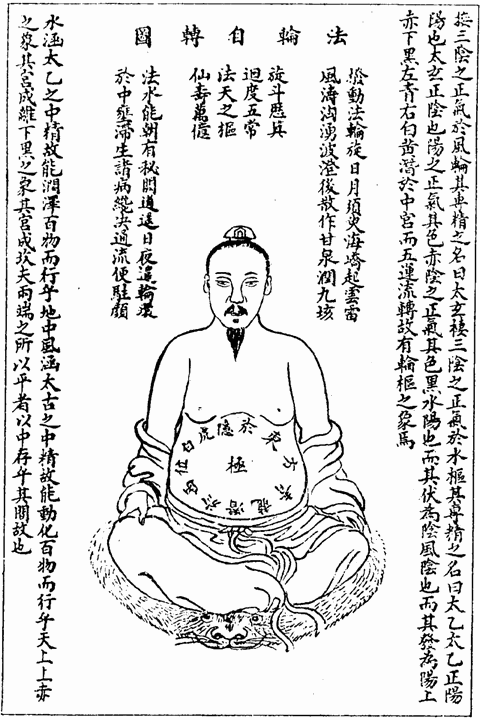 法輪自轉圖
接三陰之正氣於風輪其專精之名曰太玄棲三陰之正氣於水樞其專精之名曰太乙太乙正陽
陽也太玄正陰也陽之正氣其色赤陰之正氣其色黑水陽也而其伏為陰風陰也而其發為陽上
赤下黑左青右白黃潛於中宮而五運流轉故有輪樞之象焉
撥動法輪旋日月須臾海嶠起雲雷
風濤洶湧波澄後散作甘泉潤九垓
旋斗歷箕
迴度五常
法天之樞
仙壽萬億
法水能朝有秘關逍遙日夜遣輪還
於中壅滯生諸病纔決通流便駐顏
白虎隱於東方青龍潛於西位
極
水涵太乙之中精故能潤澤百物而行乎地中風涵太古之中精故能動化百物而行乎天上上赤
之象其宮成離下黑之象其宮成坎夫兩端之所以平者以中存乎其間故也